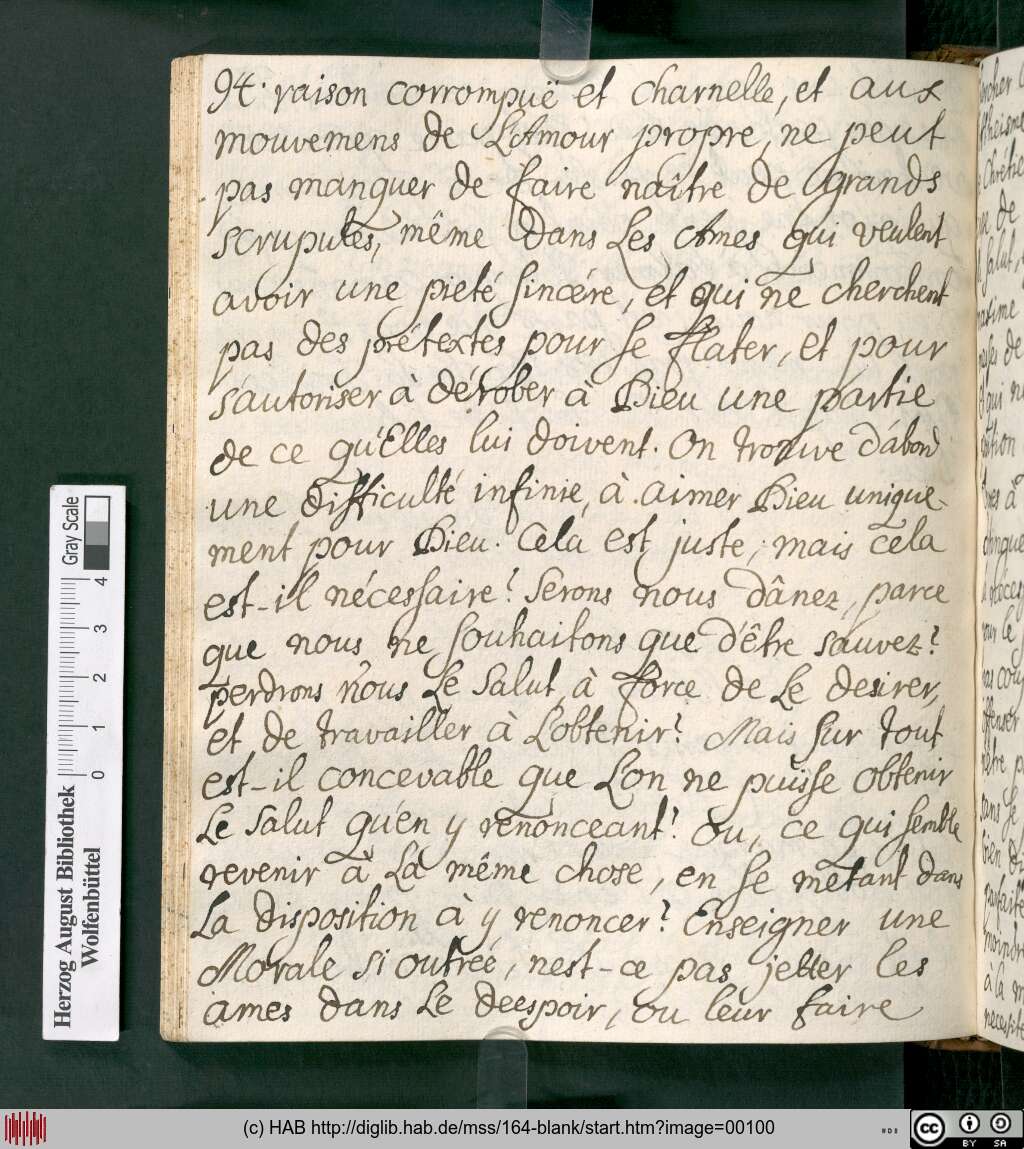 94. raison corrompuë et charnelle, et aux
mouvemens de L'Amour propre, ne peut
pas manquer de faire naître de grands
scrupules, même dans Les Ames qui veulent
avoir une pieté sincére, et qui ne cherchent
pas des prétextes pour se flater, et pour
s'autoriser à dérober à Dieu une partie
de ce qu'Elles lui doivent. On trouve d'abord
une difficulté infinie, à aimer Dieu unique-
ment pour Dieu. Cela est juste, mais cela
est-il nécessaire? Serons nous dânez, parce
que nous ne souhaitons que d'être sauvez?
perdrons nous Le Salut, à force de Le desirer,
et de travailler à L'obtenir? Mais sur tout
est-il concevable que L'on ne puisse obtenir
Le Salut qu'en y renonceant? ou, ce qui semble
revenir à La même chose, en se métant dans
La disposition à y renoncer? Enseigner une
Morale si outrée, n'est-ce pas jetter les
ames dans Le deespoir, ou leur faire
Herzog August Bibliothek
Wolfenbüttel
0 1 2 3 4
Gray Scale
(c) HAB http://diglib.hab.de/mss/164-blank/start.htm?image=00100
cc BY SA